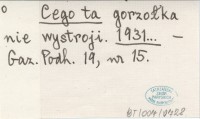 o Cego ta gorzołka
nie wystroji. 1931... —
Gaz. Podh. 19, nr 15.